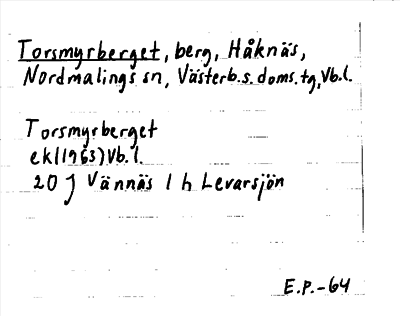 Torsmyrberget, berg, Håknäs,
Nordmalings sn, Västerb.s.doms.tg, Vb.l.
Torsmyrberget
ek(1963)Vb.l.
20 J Vännäs 1 h Levarsjön
E.P.-64